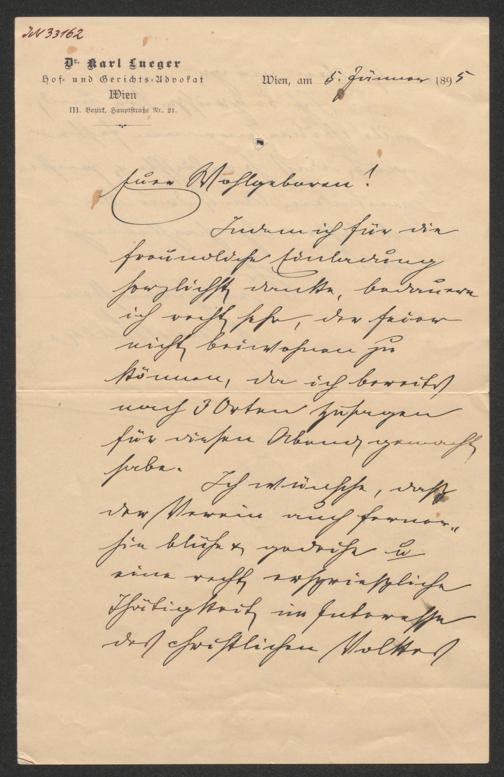 JN 33162
Dr. Karl Lueger
Hof- und Gerichts-Advokat
Wien
III. Bezirk, Hauptstraße Nr. 21.
Wien, am 5. Jänner 1895
Euer Wohlgeboren!
Indem ich für die
freundliche Einladung
herzlichst danke, bedauere
ich recht sehr, der Feier
nicht beiwohnen zu
können, da ich bereits
nach 3 Orten Zusagen
für diesen Abend gemacht
habe.
Ich wünsche, daß
der Verein auch ferner-
hin blühe & gedeihe u
eine recht ersprießliche
Thätigkeit im Interesse
des christlichen Volkes